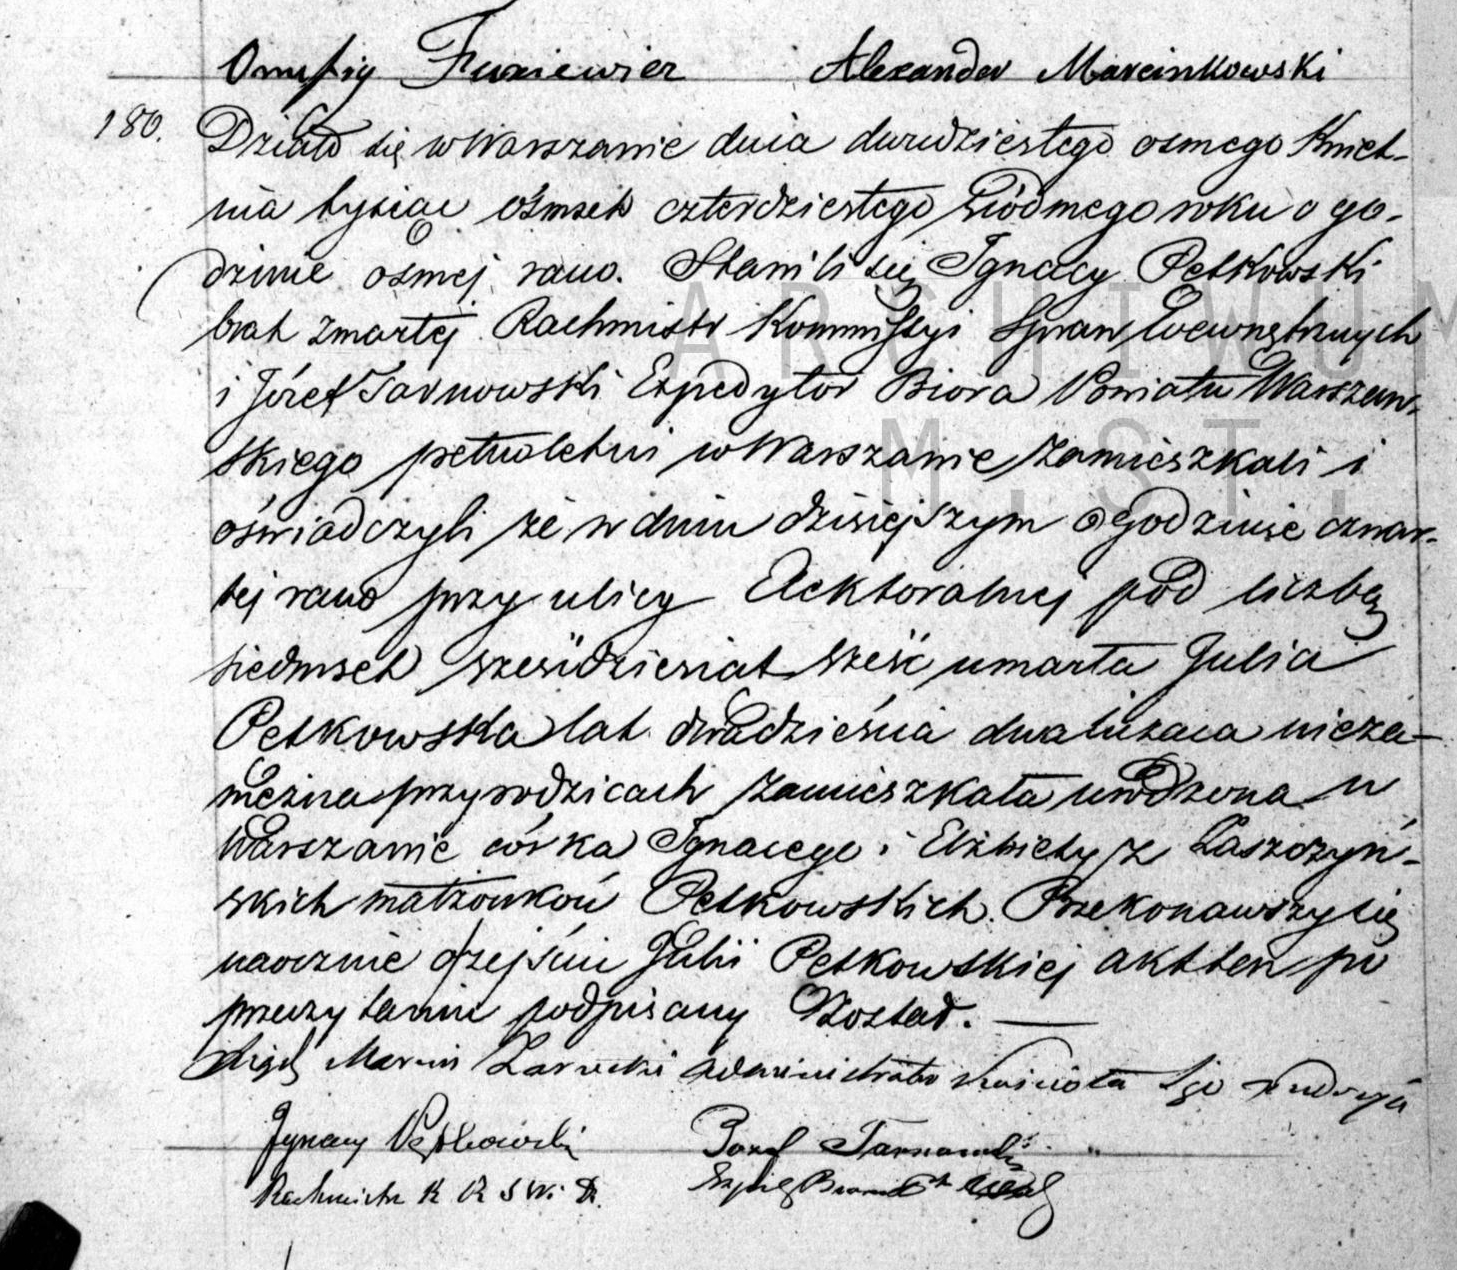 Onufry Fuxiewicz Alexander Marcinkowski
180. Działo się w Warszawie dnia dwudziestego osmego Kwiet-
nia tysiąc ośmset czterdziestego siódmego roku o go-
dzinie ósmej rano. Stawili się Ignacy Petkowski
brat zmarłej Rachmistr Kommissyi Spraw Wewnętrznych
i Józef Tarnowski Expedytor Biora Powiatu Warszaw-
skiego pełnoletni w Warszawie zamieszkali i
oświadczyli że w dniu dzisiejszym o godzinie czwar-
tej rano przy ulicy Elektoralnej pod liczbą
siedmset sześćdziesiąt sześć umarła Julia
Petkowska lat dwadzieścia dwa licząca nieza-
mężna przy rodzicach zamieszkała urodzona w
Warszawie córka Ignacego i Elżbiety z Łaszczyń-
skich małżonków Petkowskich. Przekonawszy się
naocznie o zejściu Julii Petkowskiej akt ten po
przeczytaniu podpisany Został.
Marcin Administrator Kościoła Sgo Andrzeja
Ignacy Petkowski Józef Tarnowski
Rachmistr K R S W. D.
ARCHIWUM
M. ST.